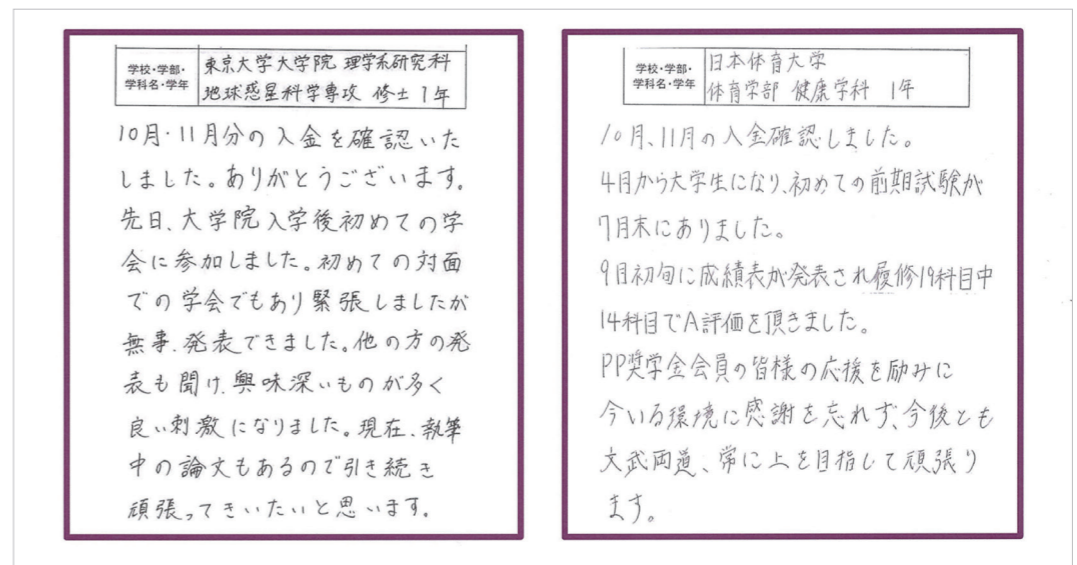 学校・学部・学科名・学年
東京大学大学院 理学系研究科
地球惑星科学専攻 修士 1年
10月・11月分の入金を確認いた
しました。ありがとうございます。
先日、大学院入学後初めての学
会に参加しました。初めての対面
での学会でもあり緊張しましたが
無事、発表できました。他の方の発
表も聞け、興味深いものが多く
良い刺激になりました。現在、執筆
中の論文もあるので引き続き
頑張ってきいたいと思います。
学校・学部・学科名・学年
日本体育大学
体育学部 健康学科 1年
10月、11月の入金確認しました。
4月から大学生になり、初めての前期試験が
7月末にありました。
9月初旬に成績表が発表され履修19科目中
14科目でA評価を頂きました。
PP奨学金会員の皆様の応援を励みに
今いる環境に感謝を忘れず、今後とも
文武両道、常に上を目指して頑張り
ます。